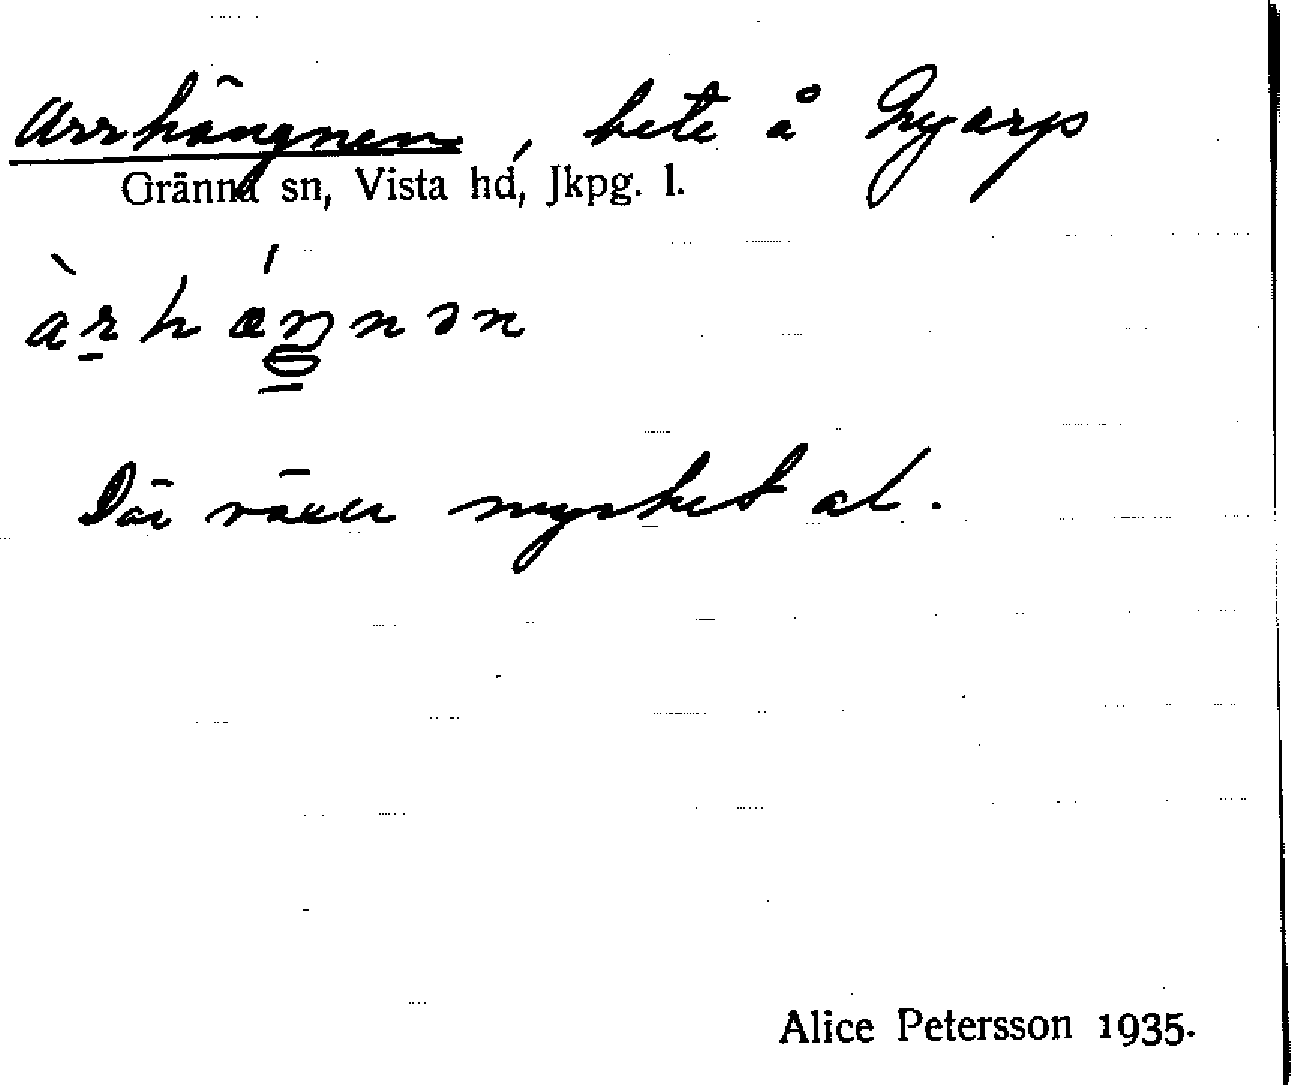 Arrhängnen, bete å Gyarp
Gränna sn, Vista hd, Jkpg. l.
àrhǽŋnən
Där växer mycket al.
Alice Petersson 1935.